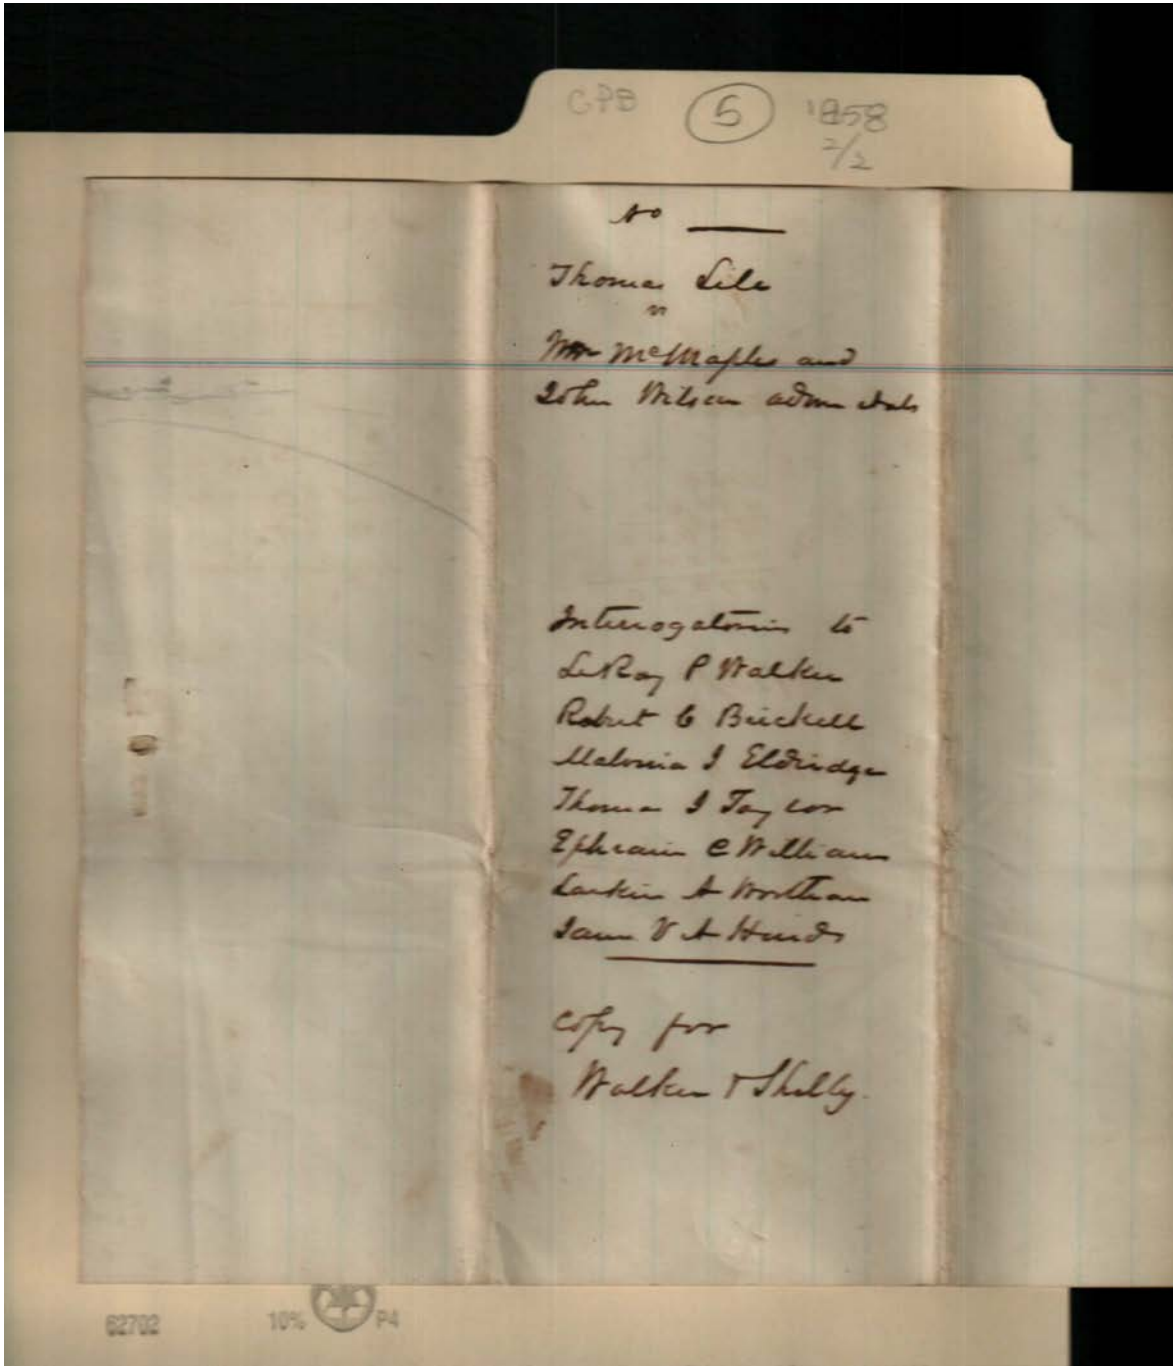 CPB 5 1858
2/2
No
Thomas Lile
vs
Wm McMaples and
John Wilson admr
Interrogatories to
LeRoy P Walker
Robert C Brickell
Malonia J Eldridge
Thomas J Taylor
Ephraim C William
Larkin A Wortham
James V A Hinds
Copy for
Walker & Shelby.
62702 10% P4